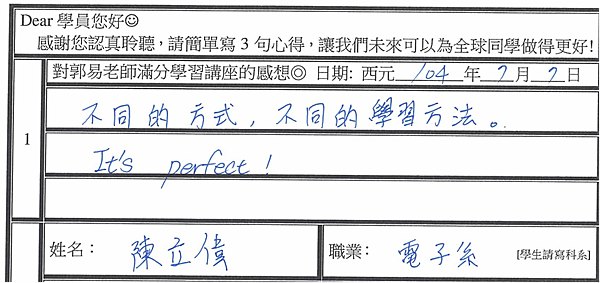 Dear 學員您好☺
感謝您認真聆聽，請簡單寫 3 句心得，讓我們未來可以為全球同學做得更好!
對郭易老師滿分學習講座的感想◎ 日期: 西元 104 年 7 月 7 日
1
不同的方式，不同的學習方法。
It's perfect!
姓名： 陳立偉 職業： 電子系 [學生請寫科系]